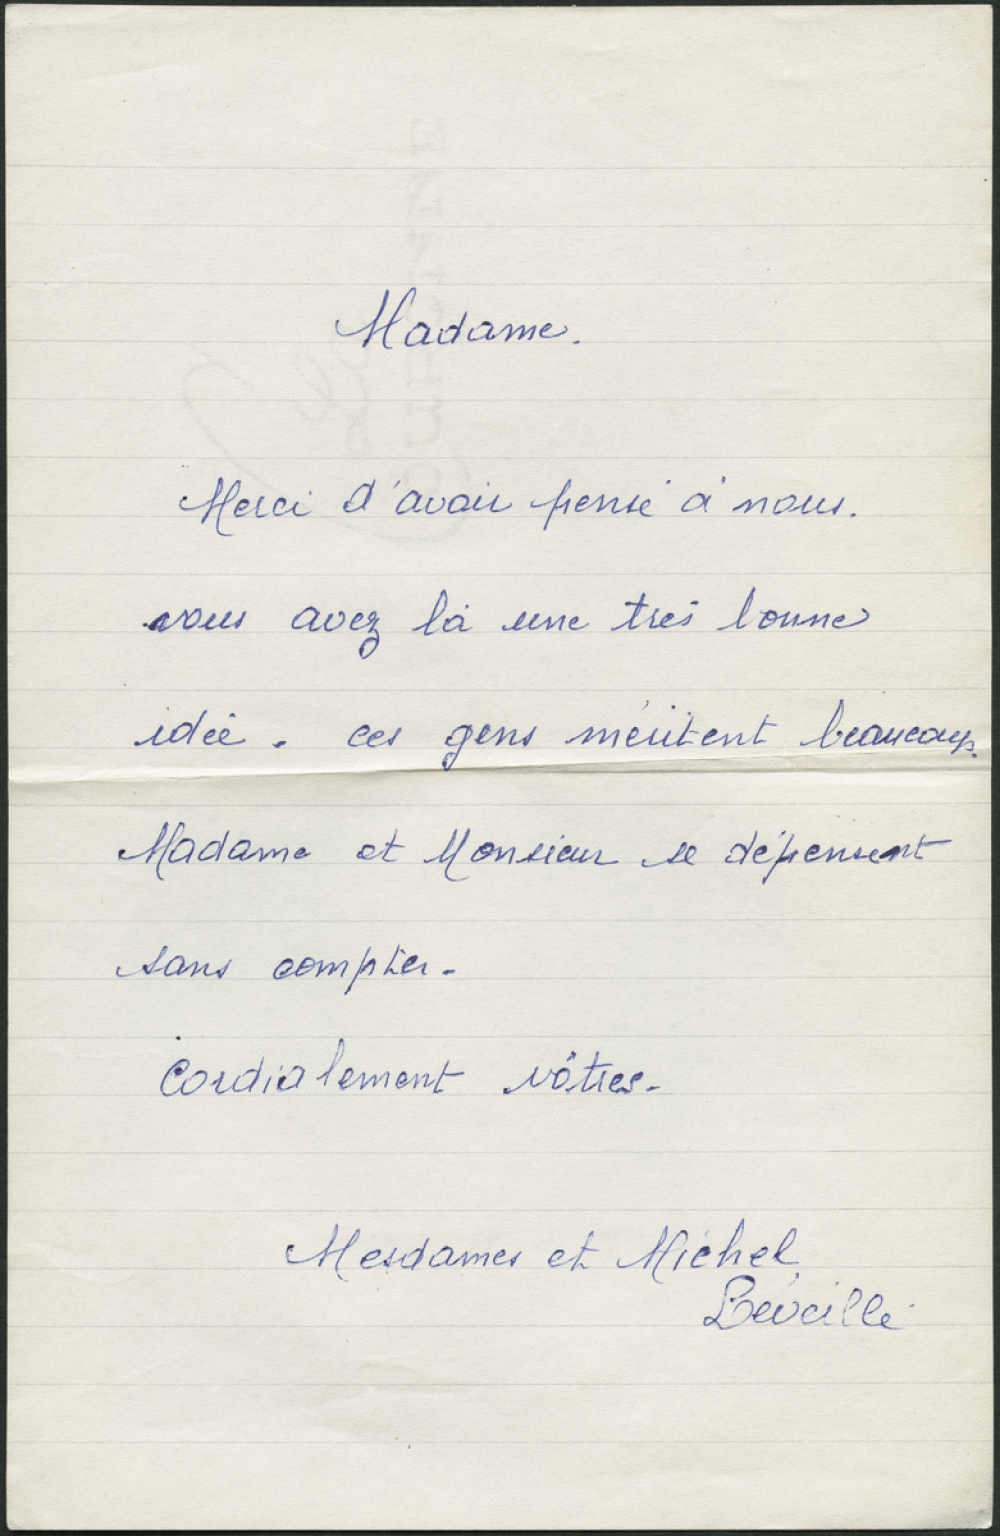 Madame.
Merci d'avoir pensé à nous.
vous avez là une très bonne
idée. ces gens méritent beaucoup.
Madame et Monsieur se dépensent
sans compter.
Cordialement vôtres.
Mesdames et Michel